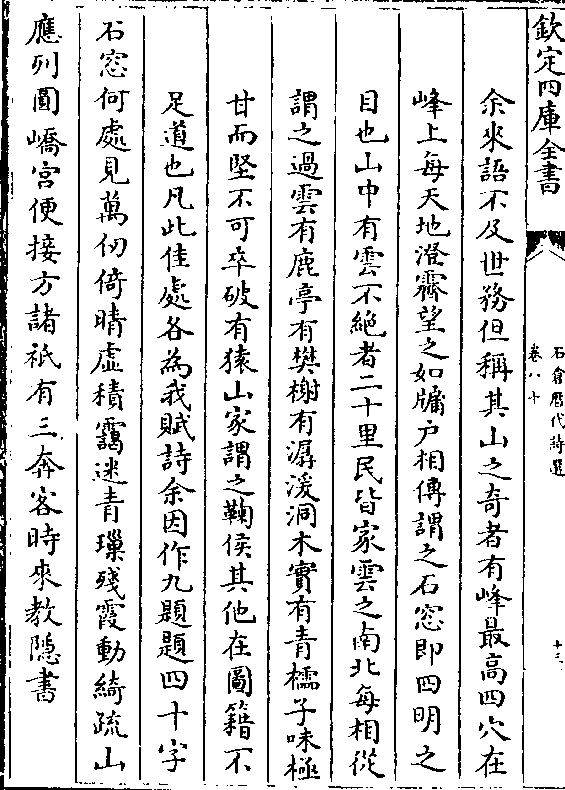 欽定四庫全書
石倉歷代詩選
卷八十
十三
余來語不及世務但稱其山之奇者有峰最高四穴在
峰上每天地澄霽望之如牖户相傳謂之石窓即四明之
目也山中有雲不絶者二十里民皆家雲之南北每相從
謂之過雲有鹿亭有樊榭有潺湲洞木實有青櫺子味極
甘而堅不可卒破有猿山家謂之鞠侯其他在圖籍不
足道也凡此佳處各為我賦詩余因作九題題四十字
石窓何處見萬仞倚晴虛積靄迷青璅殘霞動綺疏山
應列圓嶠宫便接方諸祇有三奔客時來教隠書